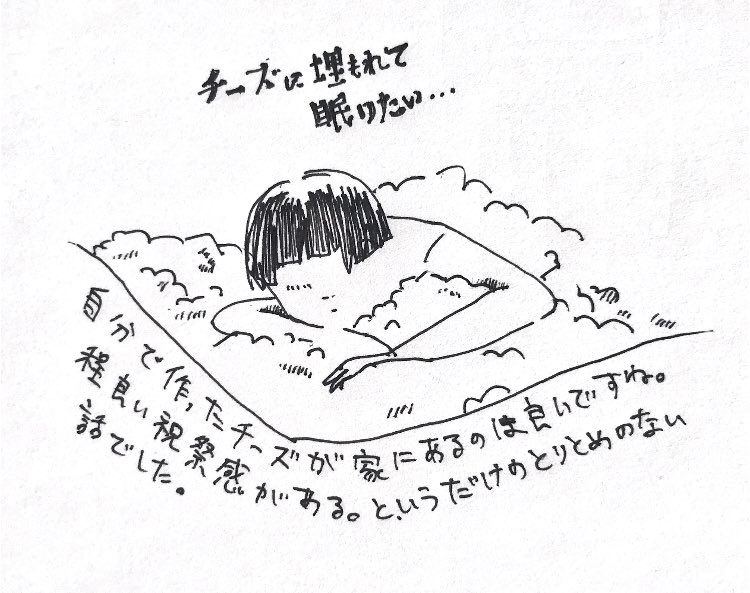 チーズに埋もれて
眠りたい...
自分で作ったチーズが家にあるのは良いですね。
程良い祝祭感がある。というだけのとりとめのない
話でした。